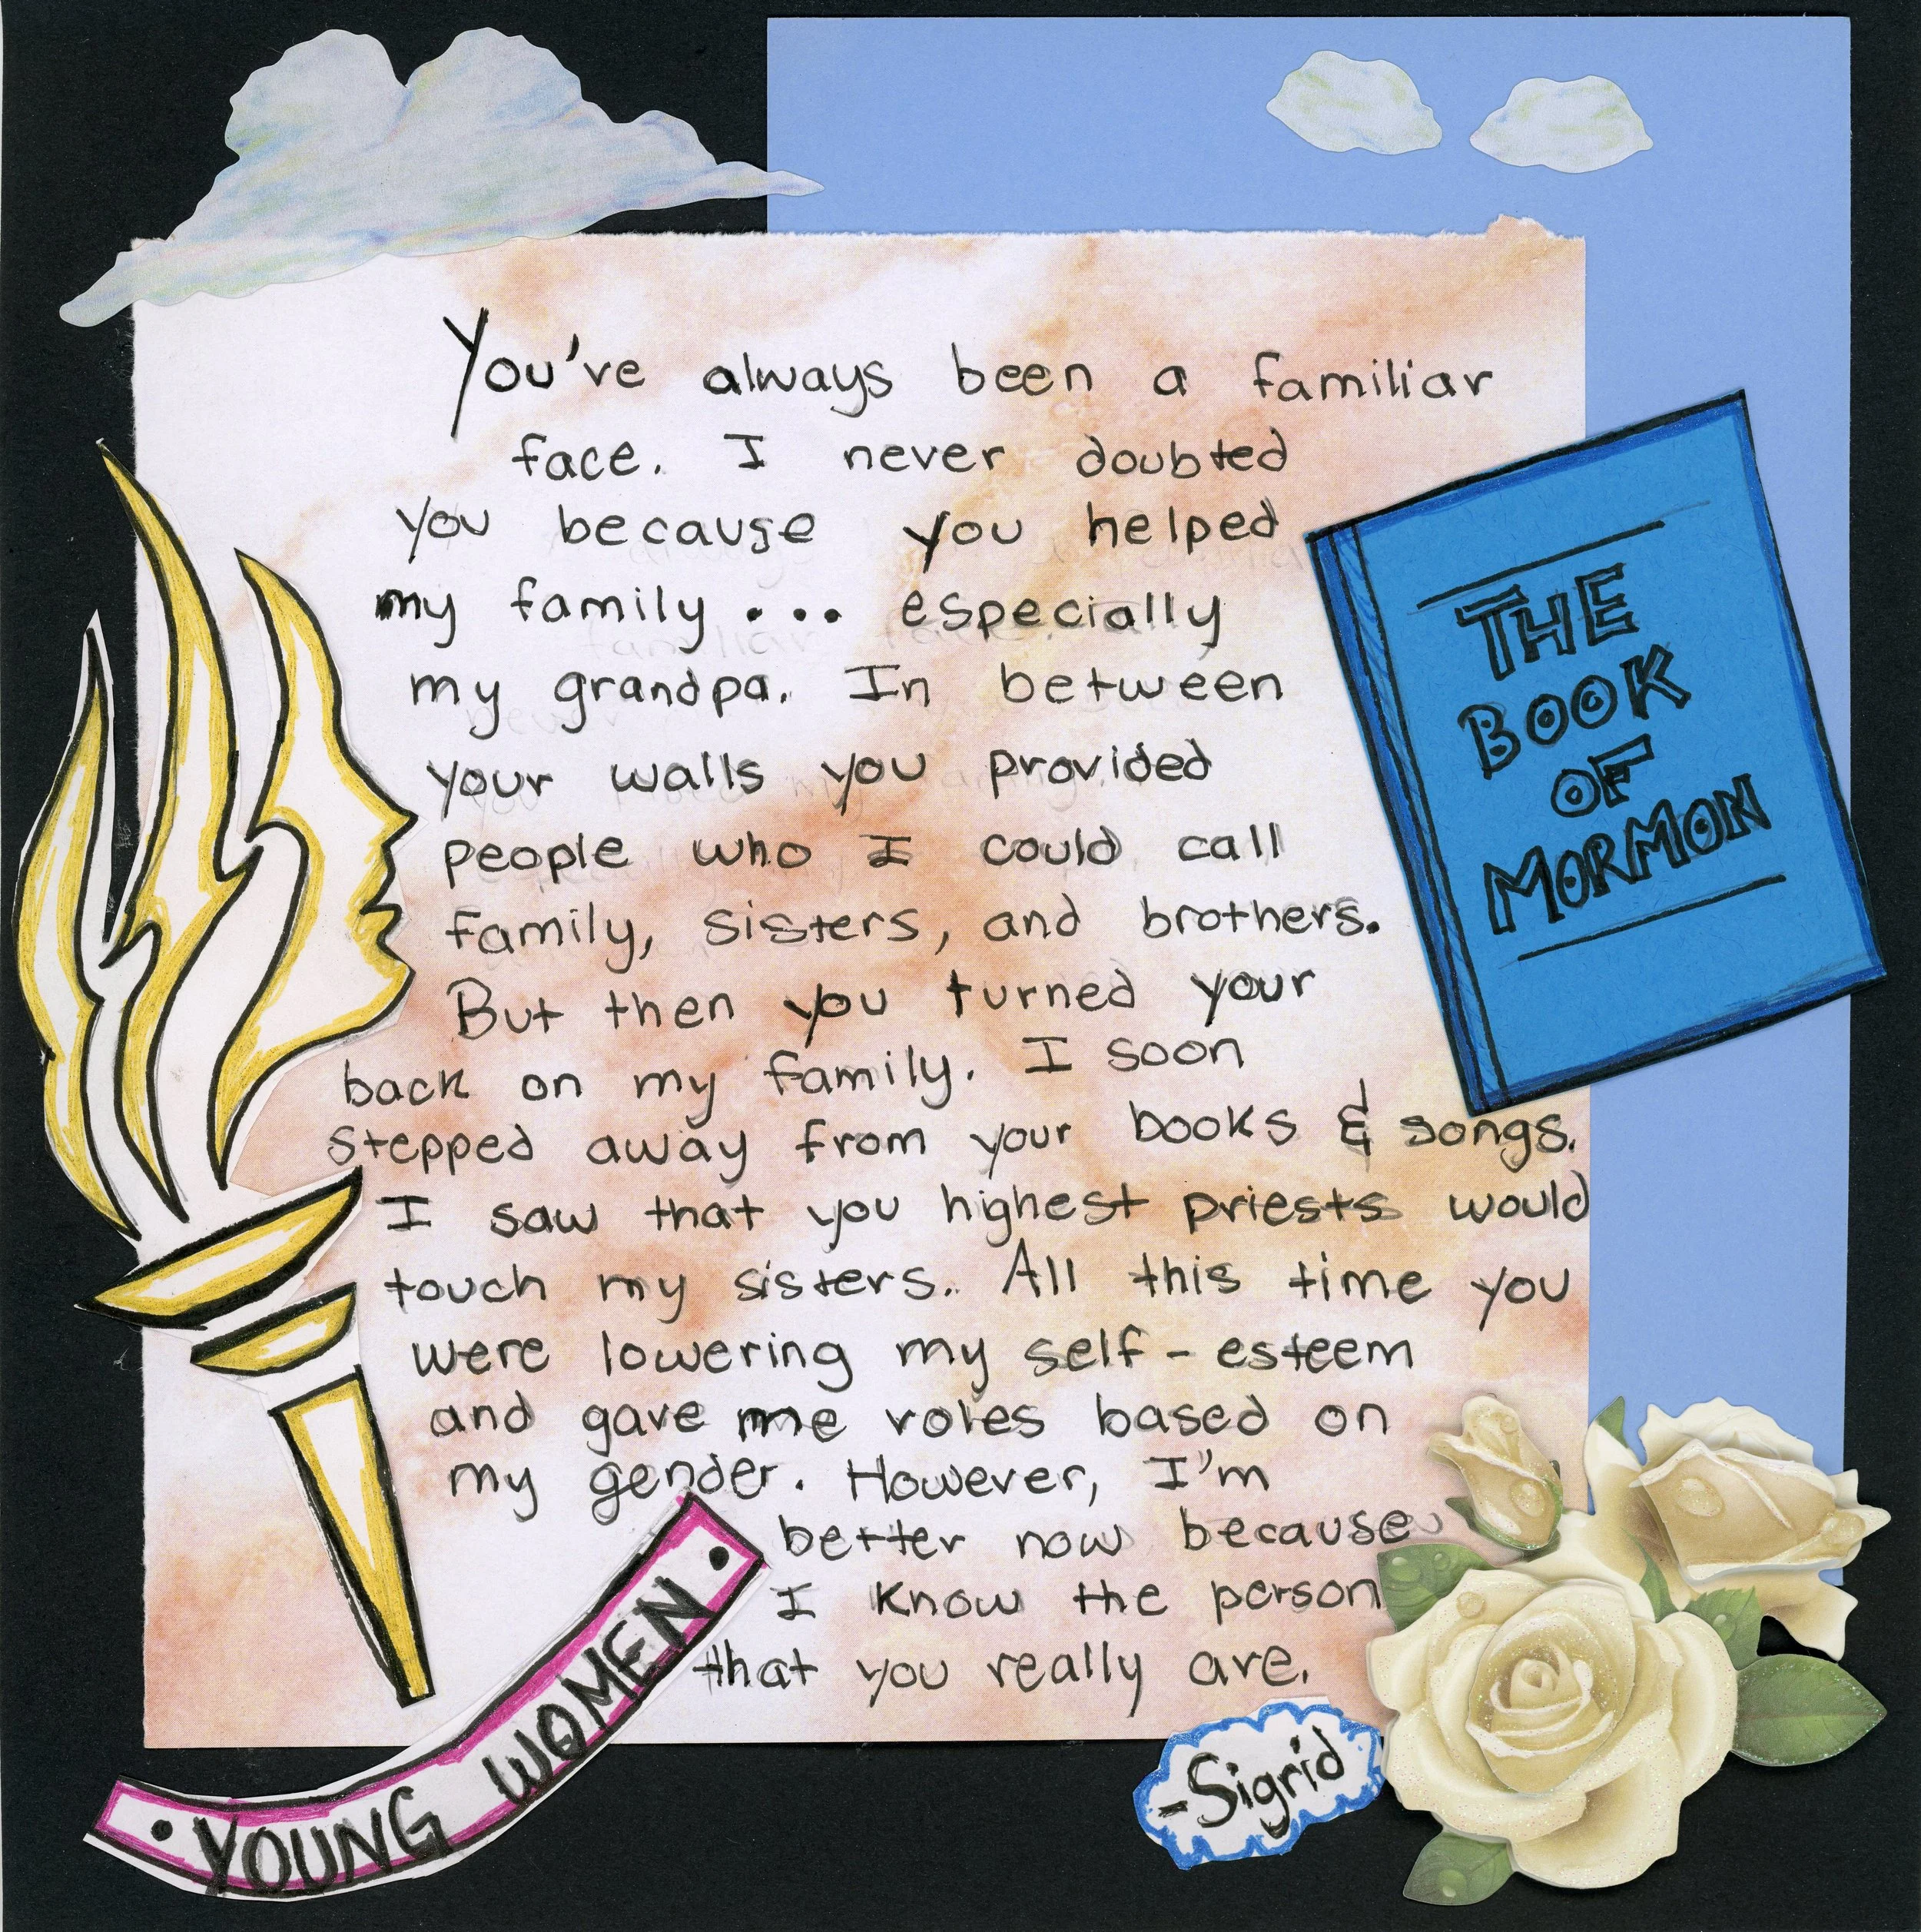 You've always been a familiar
face. I never doubted
you because you helped
my family... especially
my grandpa. In between
your walls you provided
people who I could call
family, sisters, and brothers.
But then you turned your
back on my family. I soon
stepped away from your books & songs.
I saw that you highest priests would
touch my sisters. All this time you
were lowering my self-esteem
and gave me roles based on
my gender. However, I'm
better now because
I know the person
that you really are.
-Sigrid
THE
BOOK
OF
MORMON
• YOUNG WOMEN •